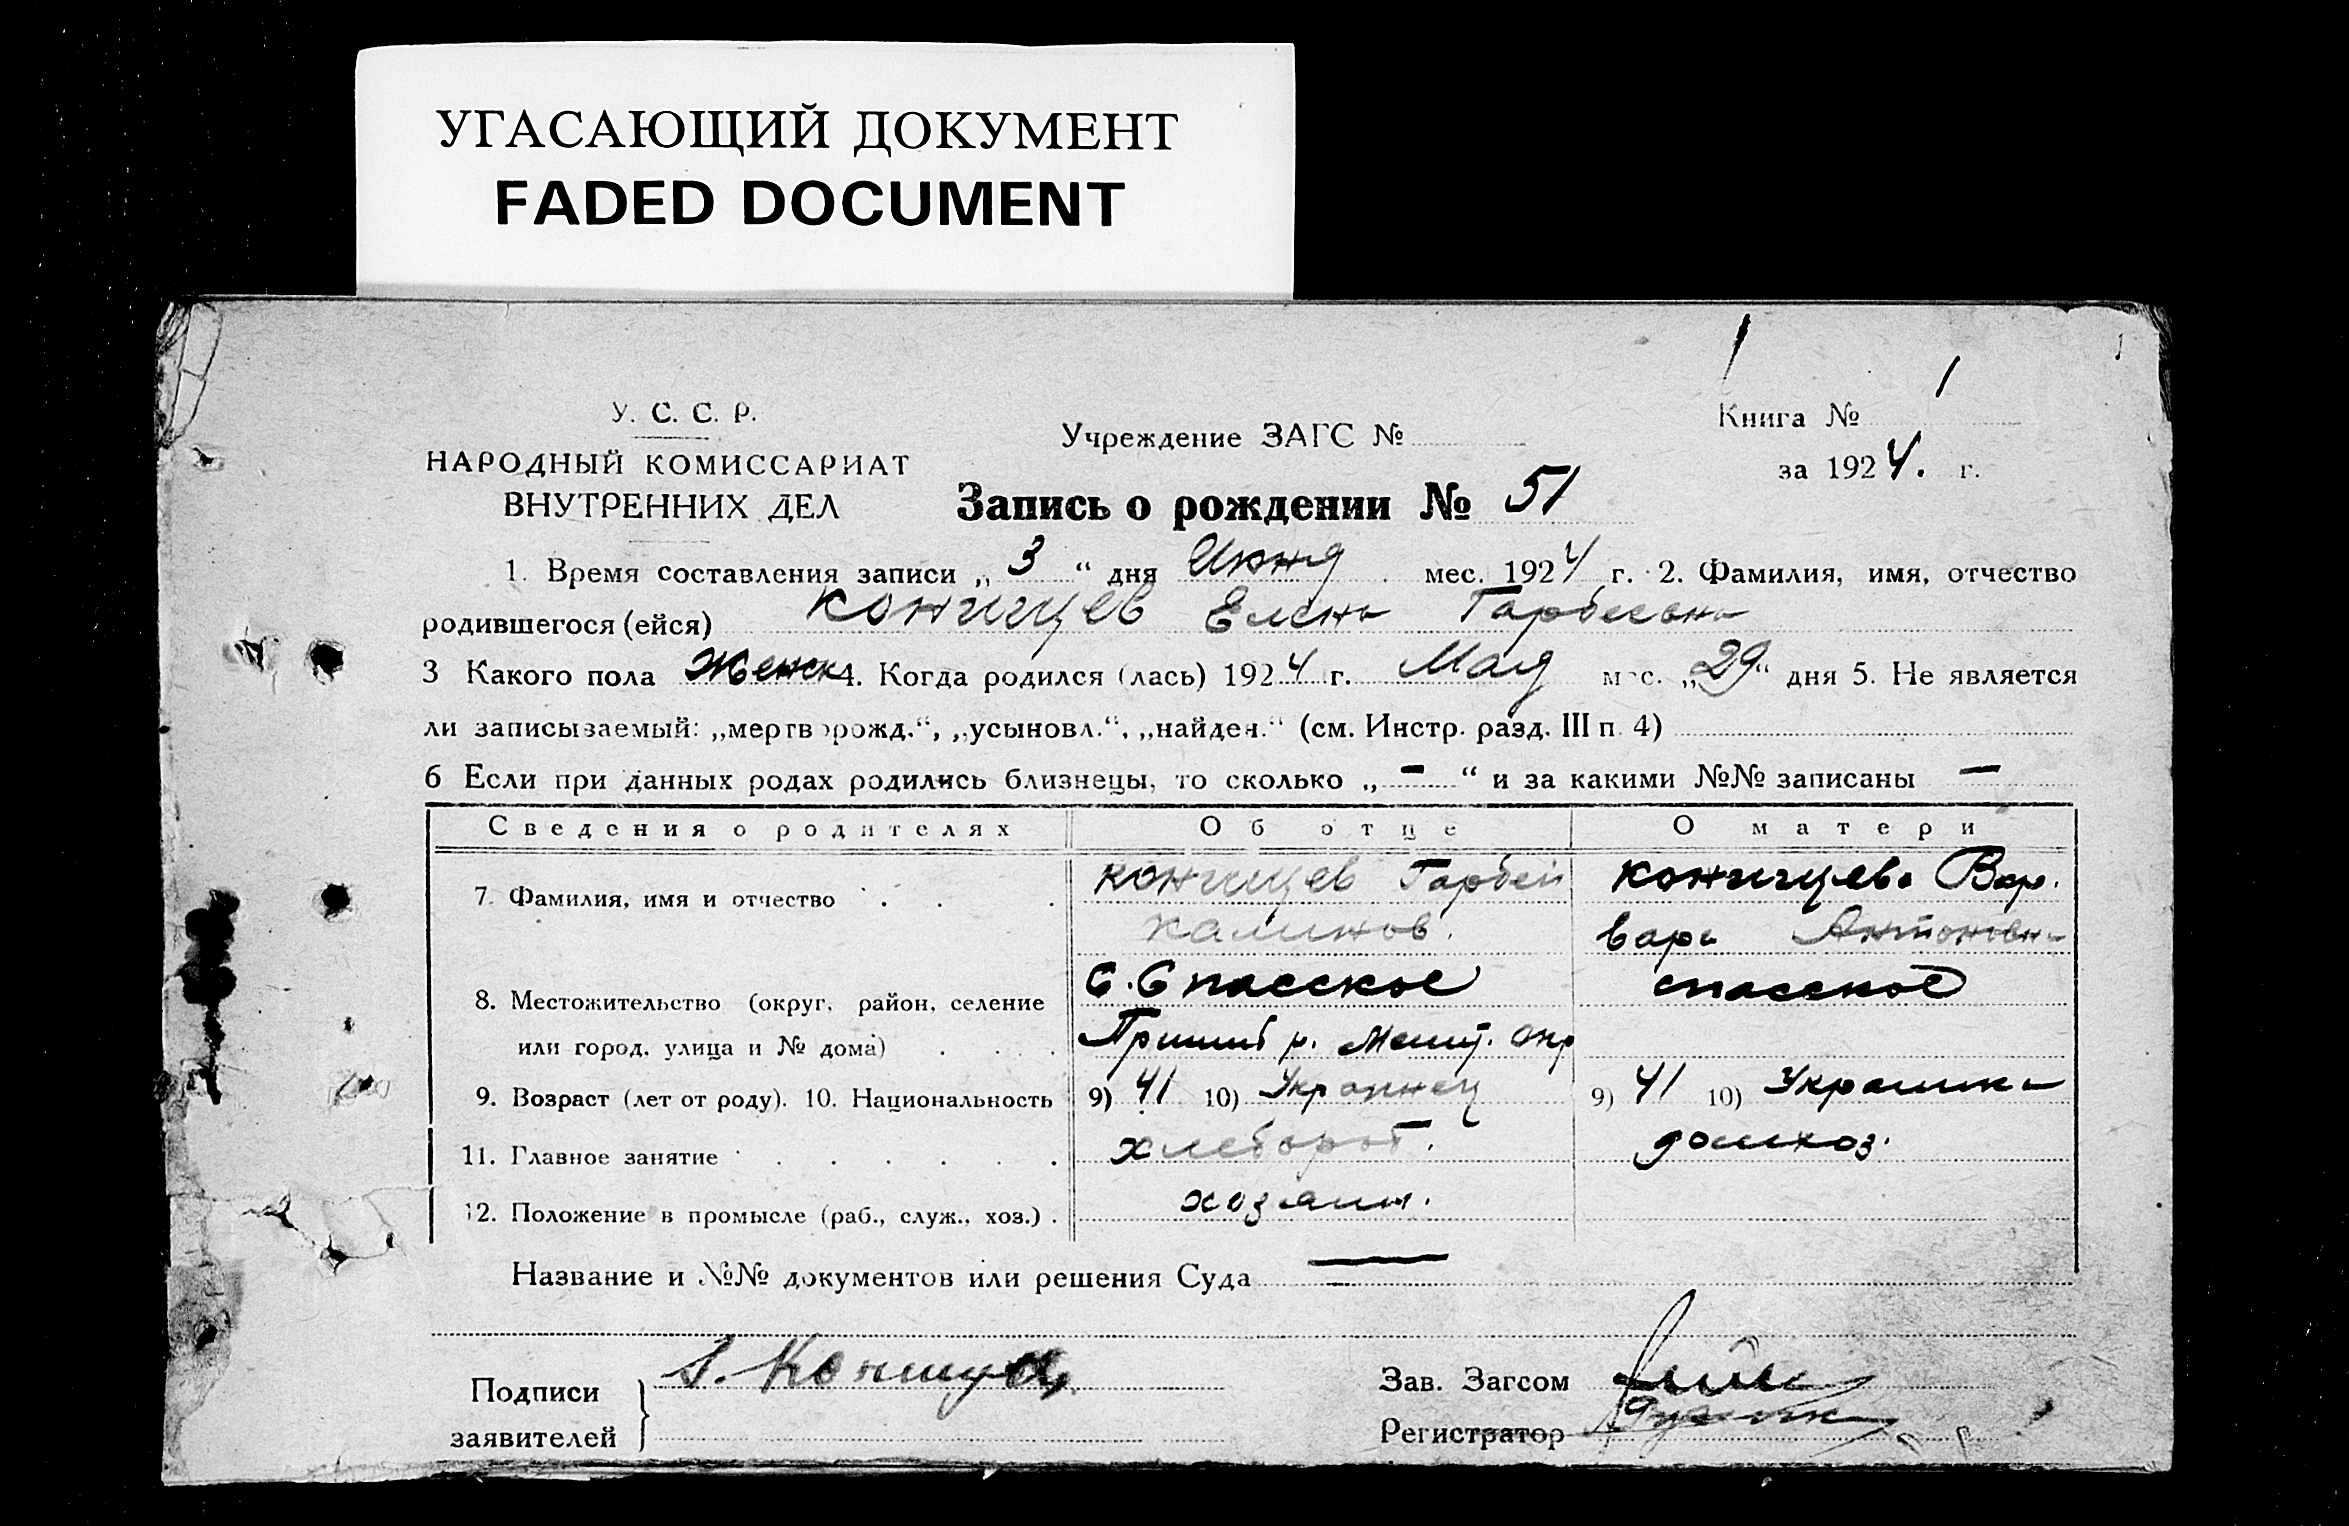 УГАСАЮЩИЙ ДОКУМЕНТ
FADED DOCUMENT
1
У. С. С. Р.
НАРОДНЫЙ КОМИССАРИАТ
ВНУТРЕННИХ ДЕЛ
Учреждение ЗАГС №
Книга № 1
за 1924. г.
Запись о рождении № 51
1. Время составления записи „ 3 “ дня Июня мес. 1924 г. 2. Фамилия, имя, отчество
родившегося (ейся) Елена
3 Какого пола Женск 4. Когда родился (лась) 1924 г. Мая мес. „29“ дня 5. Не является
ли записываемый: „мертворожд.“, „усыновл.“, „найден.“ (см. Инстр. разд. III п. 4)
6 Если при данных родах родились близнецы, то сколько „ – “ и за какими №№ записаны –
Сведения о родителях Об отце О матери
7. Фамилия, имя и отчество Вар.
калинов. вара Антоновна
8. Местожительство (округ, район, селение С. Спасское спасское
или город, улица и № дома) Пришиб р. Мелит. окр
9. Возраст (лет от роду). 10. Национальность 9) 41 10) Украинец 9) 41 10) Украинка
11. Главное занятие хлебороб. домхоз.
12. Положение в промысле (раб., служ., хоз.) хозяин.
Название и №№ документов или решения Суда —
Подписи
заявителей
Зав. Загсом
Регистратор